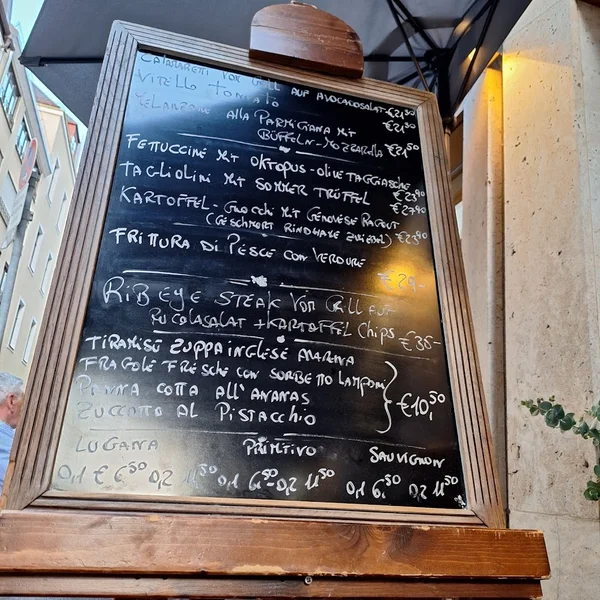 CALAMARETTI VOM GRILL AUF AVOCADOSALAT €21,50
VITELLO TONNATO €21,50
MELANZANE ALLA PARMIGIANA MIT
BÜFFELN-MOZZARELLA €21,50
FETUCCINE MIT OKTOPUS-OLIVE TAGGIASCHE €23,90
TAGLIOLINI MIT SOMMER TRÜFFEL €27,90
KARTOFFEL-GNOCCHI MIT GENOVESE RAGOUT
(GESCHMORT RINDWANE ZWIEBEL) €23,90
FRITTURA DI PESCE CON VERDURE
€29-
RIB EYE STEAK VOM GRILL AUF
RUCOLASALAT + KARTOFFEL CHIPS €36-
TIRAMISÈ ZUPPA INGLESE AMARENA
FRAGOLE FRESCHE CON SORBETTO LAMPONI
PANNA COTTA ALL'ANANAS €10,50
ZUCCOTTO AL PISTACCHIO
LUGANA PRIMITIVO SAUVIGNON
0,1 € 6,50 0,2 11,50 0,1 6,50-0,2 11,50 0,1 6,50 0,2 11,50